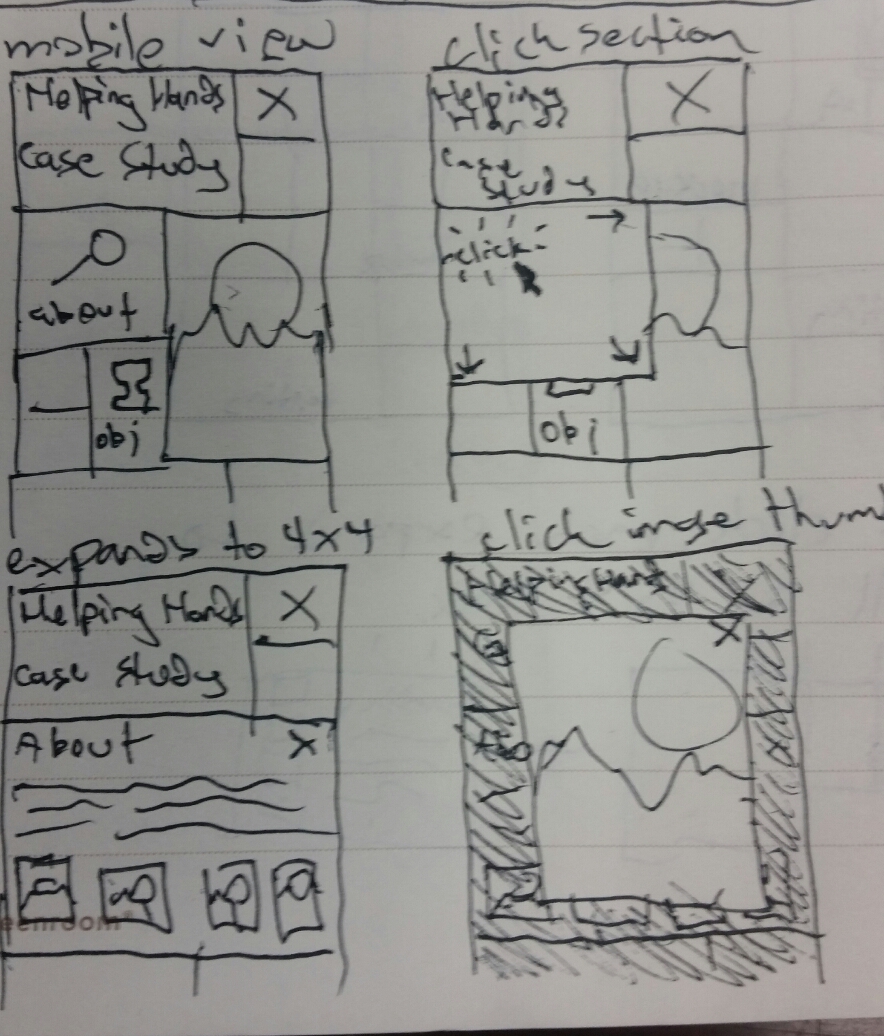 mobile view
Helping Hands X
Case Study
about
obj
click section
Helping Hands X
Case Study
click
obj
expands to 4x4
Helping Hands X
Case Study
About X
click image thumb
Helping Hands X
X